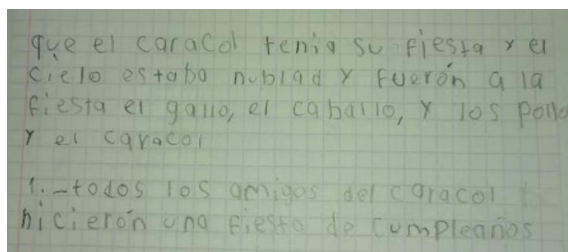 que el caracol tenia su fiesta y el
cielo estaba nublad y fuerón a la
fiesta el gallo, el caballo, y los pollo
y el caracol
1.-todos los amigos del caracol
hicierón una fiesta de cumpleaños